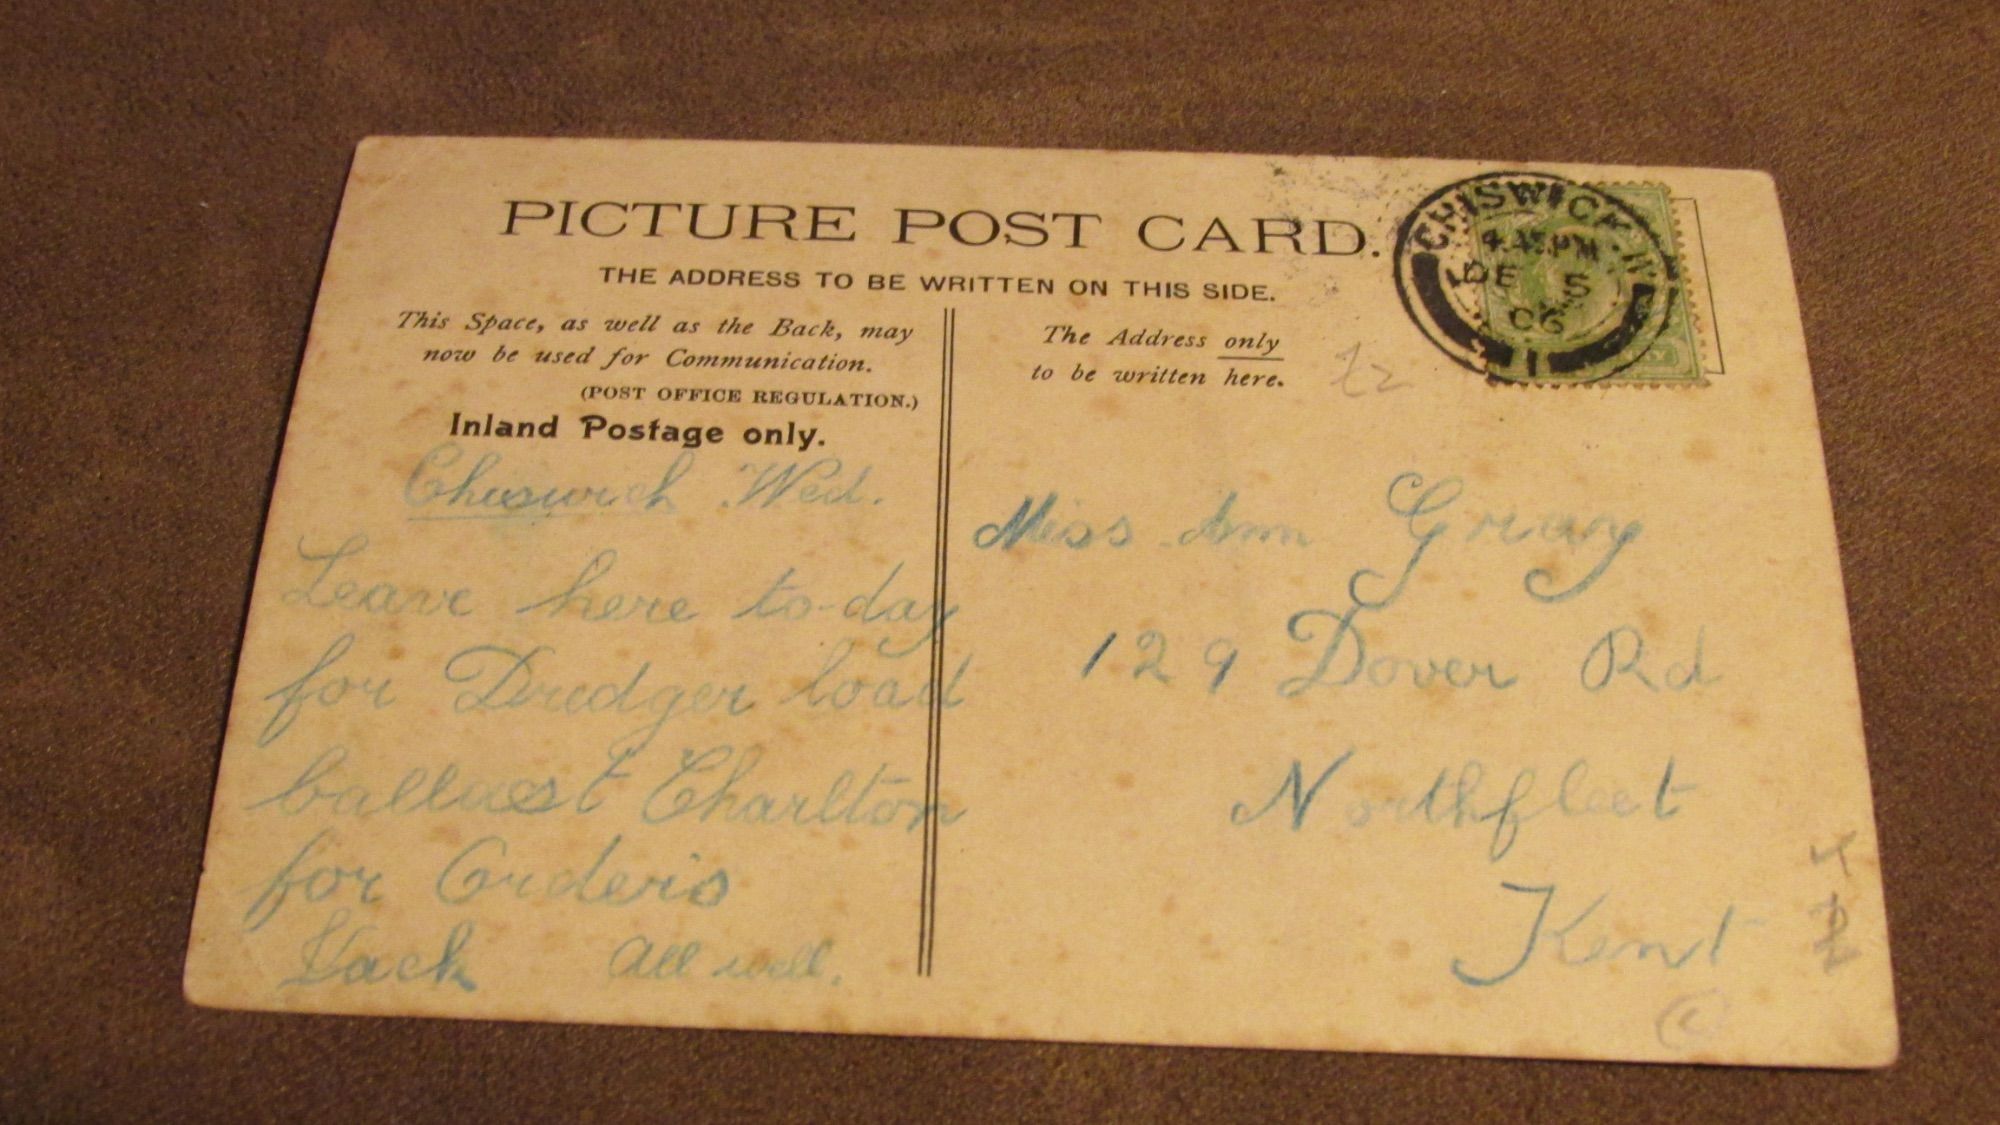 PICTURE POST CARD.
THE ADDRESS TO BE WRITTEN ON THIS SIDE.
This Space, as well as the Back, may
now be used for Communication.
(POST OFFICE REGULATION.)
Inland Postage only.
Chiswick Wed.
Leave here to-day
for Dredger load
ballast Charlton
for Orders
Jack All well.
The Address only
to be written here.
CHISWICK. W
4.45 PM
DE 5
06
11
Miss Ann Gray
129 Dover Rd
Northfleet
Kent